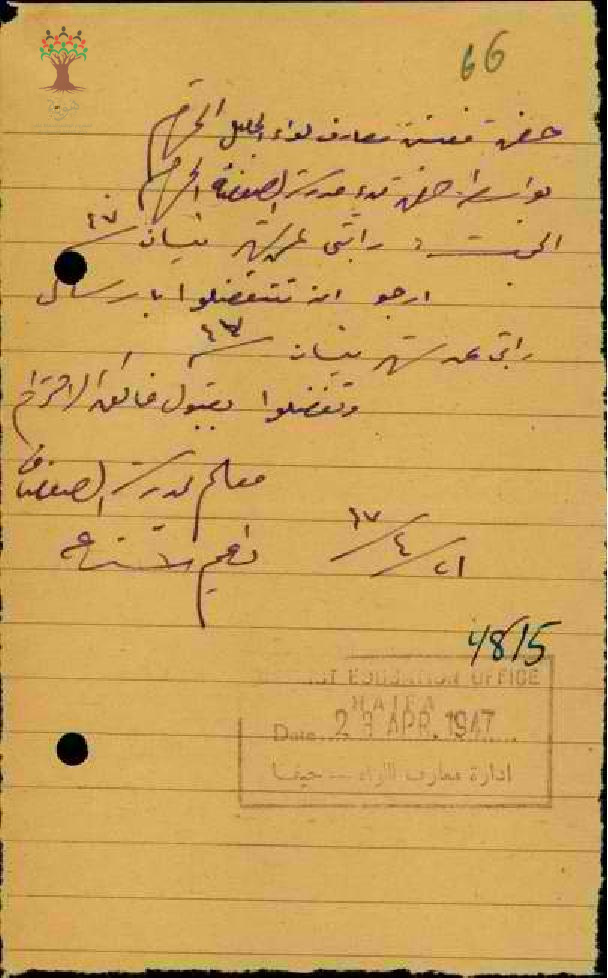 66
حضرة مفتش معارف لواء الجليل المحترم
بواسطة حضرة مدير مدرسة الصفصاف المحترم
الموضوع: راتبي عن شهر نيسان سنة ٤٧
ارجو ان تتفضلوا بارسال
راتبي عن شهر نيسان سنة ٤٧
وتفضلوا بقبول فائق الاحترام
معلم مدرسة الصفصاف
٢١/٤/٤٧ نعيم
48/5
DISTRICT EDUCATION OFFICE
HAIFA
Date 23 APR. 1947
ادارة معارف اللواء - حيفا